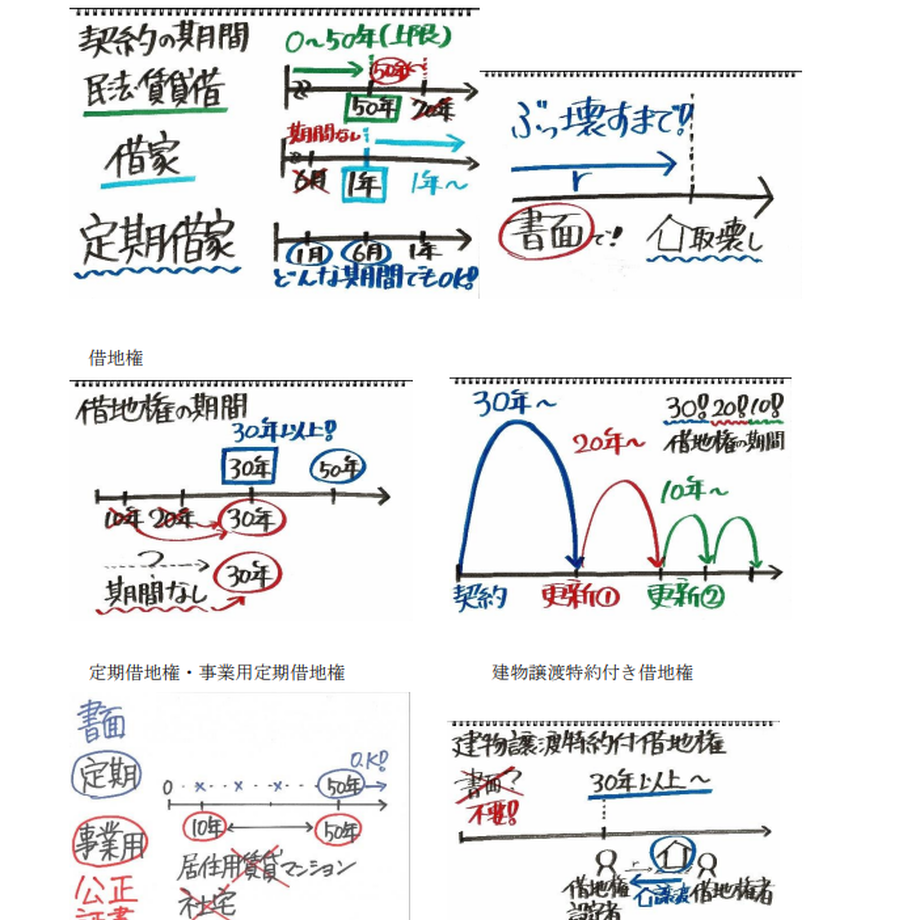 契約の期間
0～50年(上限)
民法・賃貸借
50年～
50年
20年
借家
期間なし
6月
1年
1年～
定期借家
1月
6月
1年
どんな期間でもOK!
ぶっ壊すまで!
r
書面で!
取壊し
借地権
借地権の期間
30年以上!
30年
50年
10年
20年
30年
?
期間なし
30年
30年～
30! 20! 10!
借地権の期間
20年～
10年～
契約
更新①
更新②
定期借地権・事業用定期借地権
書面
定期
O.K!
0
50年
事業用
10年
50年
居住用賃貸マンション
社宅
公正
証書
建物譲渡特約付き借地権
建物譲渡特約付借地権
書面?
不要!
30年以上～
r
借地権
設定者
譲渡
借地権者